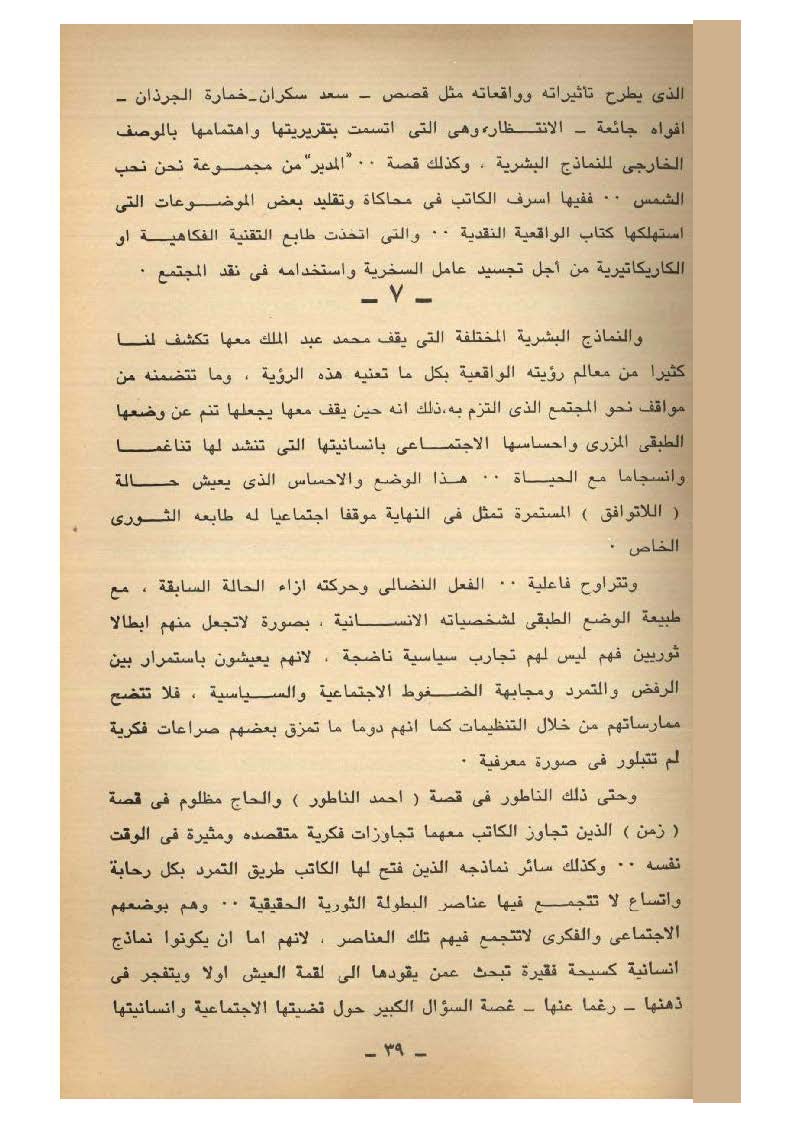 الذى يطرح تأثيراته وواقعاته مثل قصص – سعد سكران – خمارة الجرذان –
افواه جائعة – الانتظار، وهى التى اتسمت بتقريريتها واهتمامها بالوصف
الخارجى للنماذج البشرية ، وكذلك قصة ٠٠ "المدبر" من مجموعة نحن نحب
الشمس ٠٠ ففيها اسرف الكاتب فى محاكاة وتقليد بعض الموضوعات التى
استهلكها كتاب الواقعية النقدية ٠٠ والتى اتخذت طابع التقنية الفكاهية او
الكاريكاتيرية من أجل تجسيد عامل السخرية واستخدامه فى نقد المجتمع ٠
– ٧ –
والنماذج البشرية المختلفة التى يقف محمد عبد الملك معها تكشف لنا
كثيرا من معالم رؤيته الواقعية بكل ما تعنيه هذه الرؤية ، وما تتضمنه من
مواقف نحو المجتمع الذى التزم به، ذلك انه حين يقف معها يجعلها تنم عن وضعها
الطبقى المزرى واحساسها الاجتماعى بانسانيتها التى تنشد لها تناغما
وانسجاما مع الحياة ٠٠ هذا الوضع والاحساس الذى يعيش حالة
( اللاتوافق ) المستمرة تمثل فى النهاية موقفا اجتماعيا له طابعه الثورى
الخاص ٠
وتتراوح فاعلية ٠٠ الفعل النضالى وحركته ازاء الحالة السابقة ، مع
طبيعة الوضع الطبقى لشخصياته الانسانية ، بصورة لاتجعل منهم ابطالا
ثوريين فهم ليس لهم تجارب سياسية ناضجة ، لانهم يعيشون باستمرار بين
الرفض والتمرد ومجابهة الضغوط الاجتماعية والسياسية ، فلا تتضح
ممارساتهم من خلال التنظيمات كما انهم دوما ما تمزق بعضهم صراعات فكرية
لم تتبلور فى صورة معرفية ٠
وحتى ذلك الناطور فى قصة ( احمد الناطور ) والحاج مظلوم فى قصة
( زمن ) الذين تجاوز الكاتب معهما تجاوزات فكرية متقصده ومثيرة فى الوقت
نفسه ٠٠ وكذلك سائر نماذجه الذين فتح لها الكاتب طريق التمرد بكل رحابة
واتساع لا تتجمع فيها عناصر البطولة الثورية الحقيقية ٠٠ وهم بوضعهم
الاجتماعى والفكرى لاتتجمع فيهم تلك العناصر ، لانهم اما ان يكونوا نماذج
انسانية كسيحة فقيرة تبحث عمن يقودها الى لقمة العيش اولا ويتفجر فى
ذهنها – رغما عنها – غصة السؤال الكبير حول قضيتها الاجتماعية وانسانيتها
– ٣٩ –